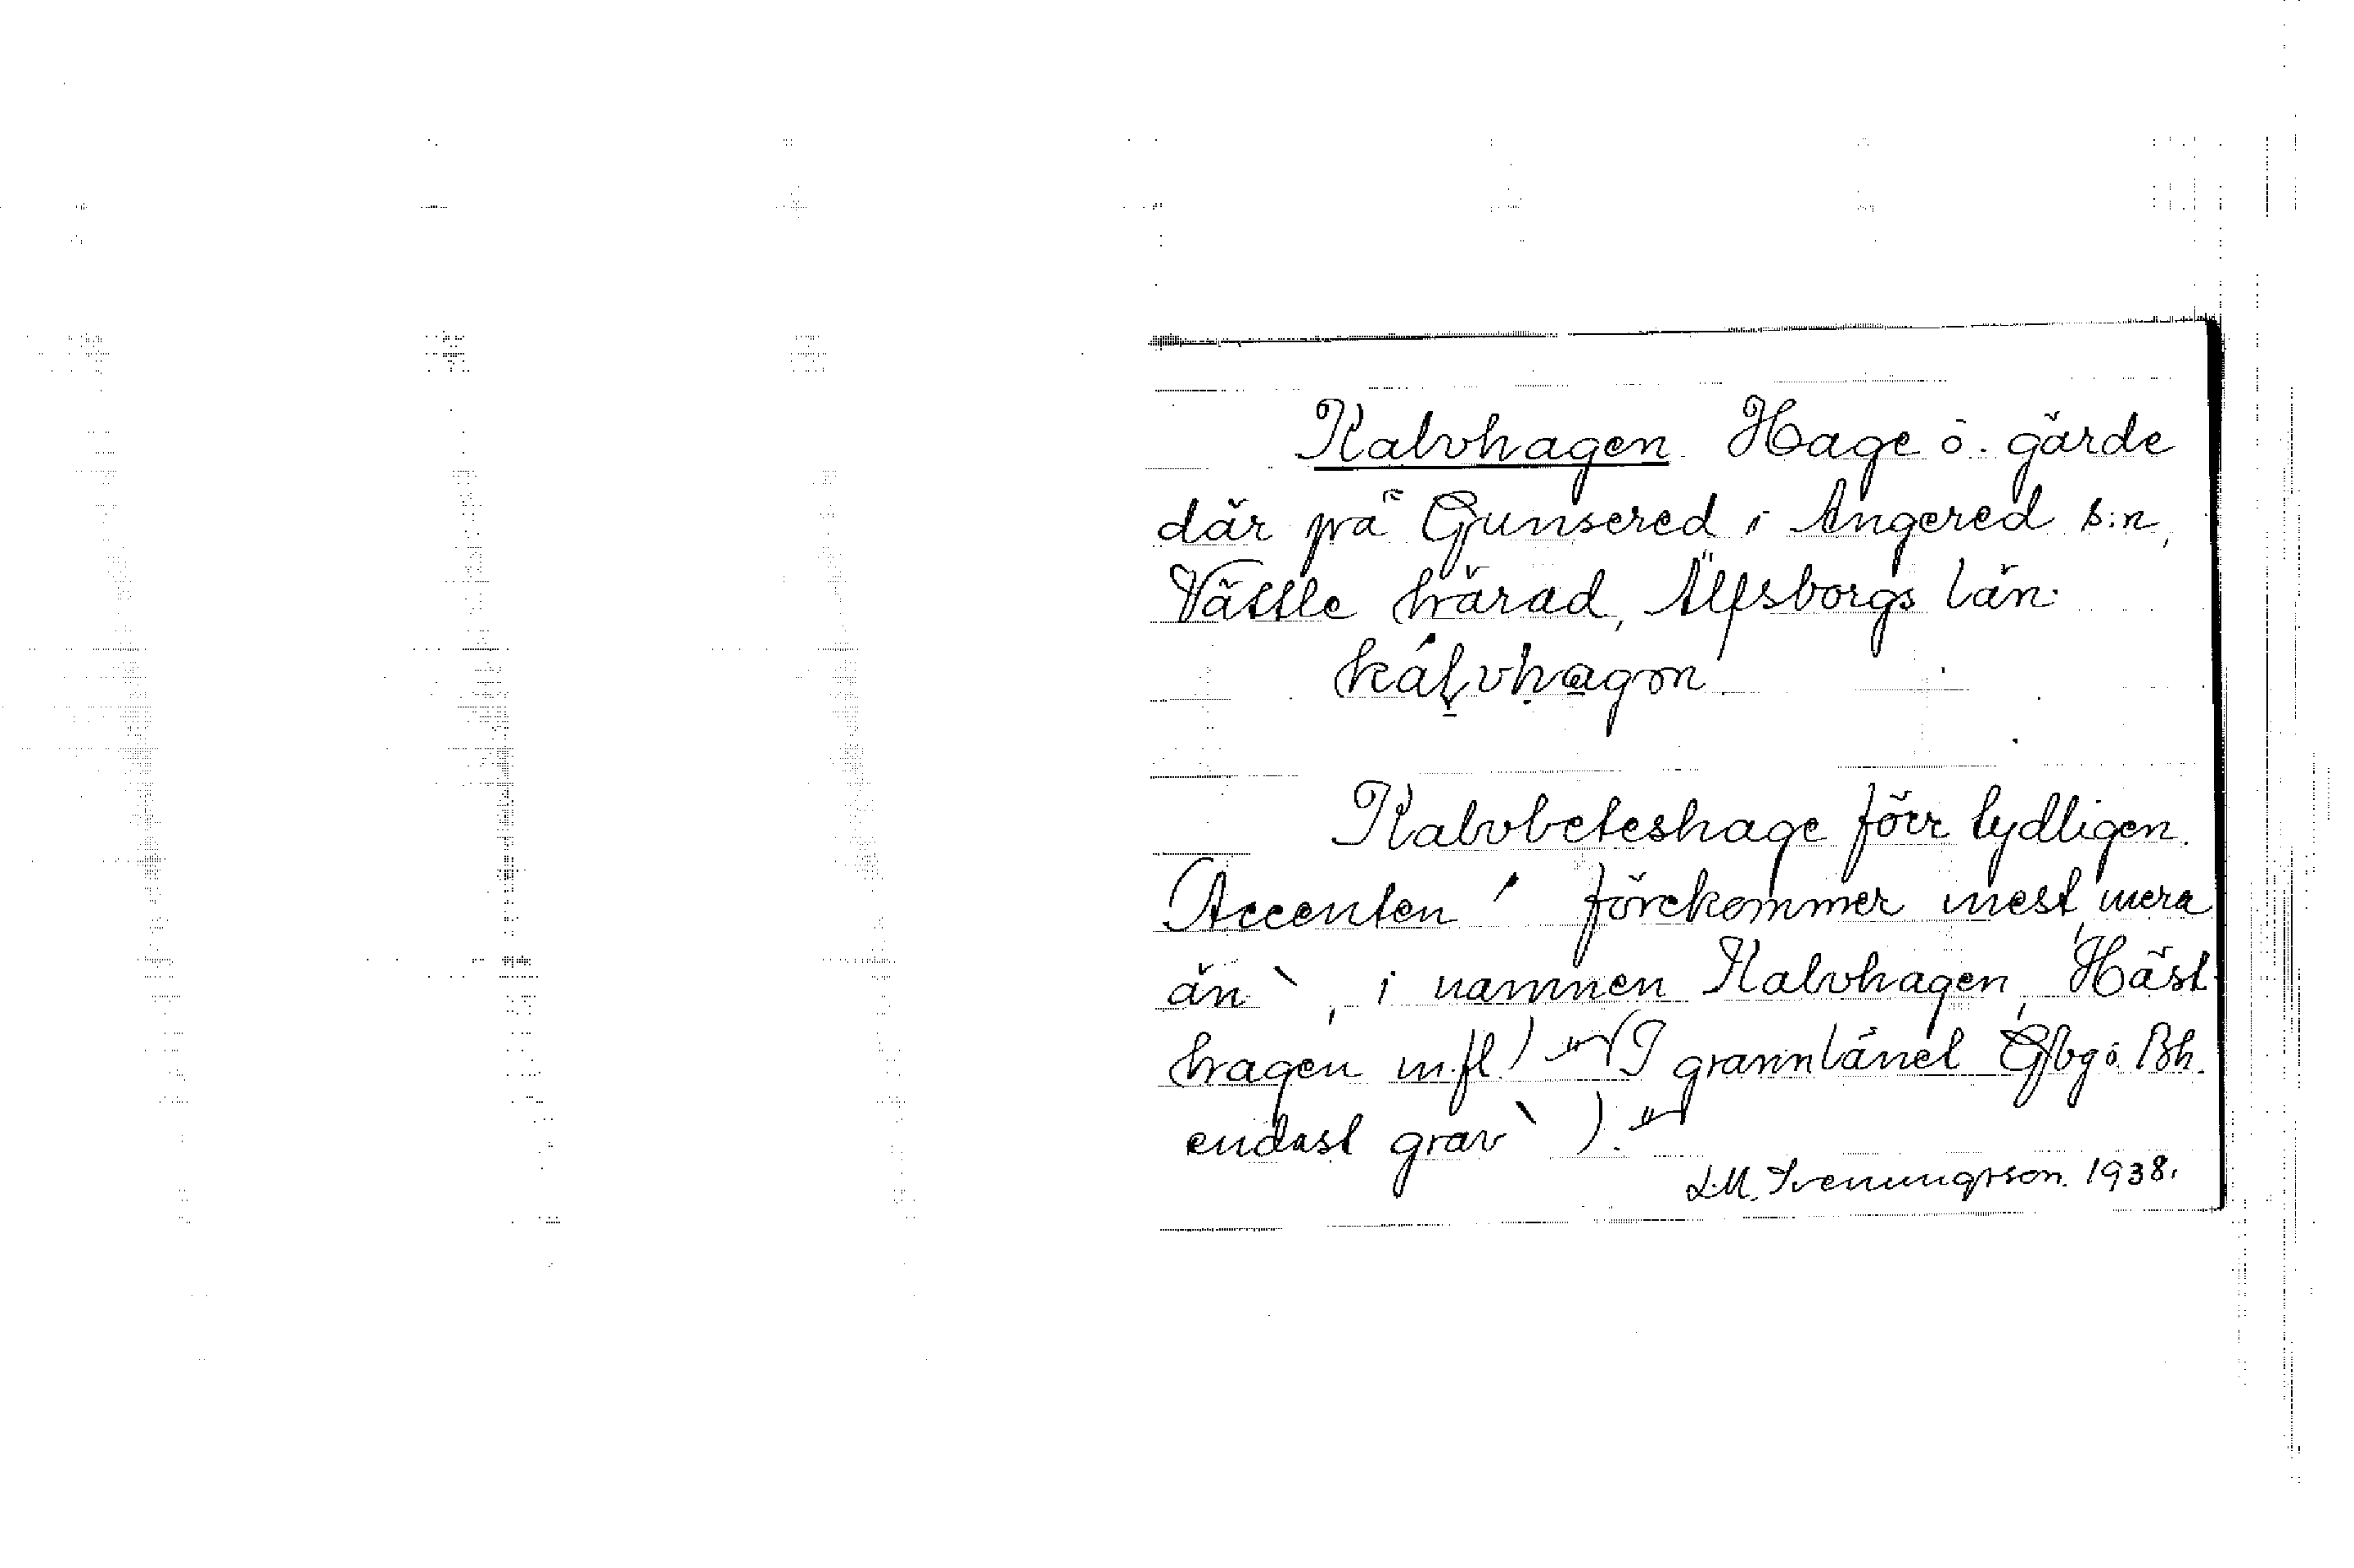 Kalvhagen Hage o. gärde
där på Gunsered i Angered s:n,
Vättle härad, Älfsborgs län.
kálvhagɷn
Kalvbeteshage förr tydligen.
(Accenten ´ förekommer mest, mera
än `, i namnen Kalvhagen, Häst-
hagen m.fl.) (I grannlänet Gbg o. Bh.
endast grav ` ).
L.M. Svenungsson. 1938.